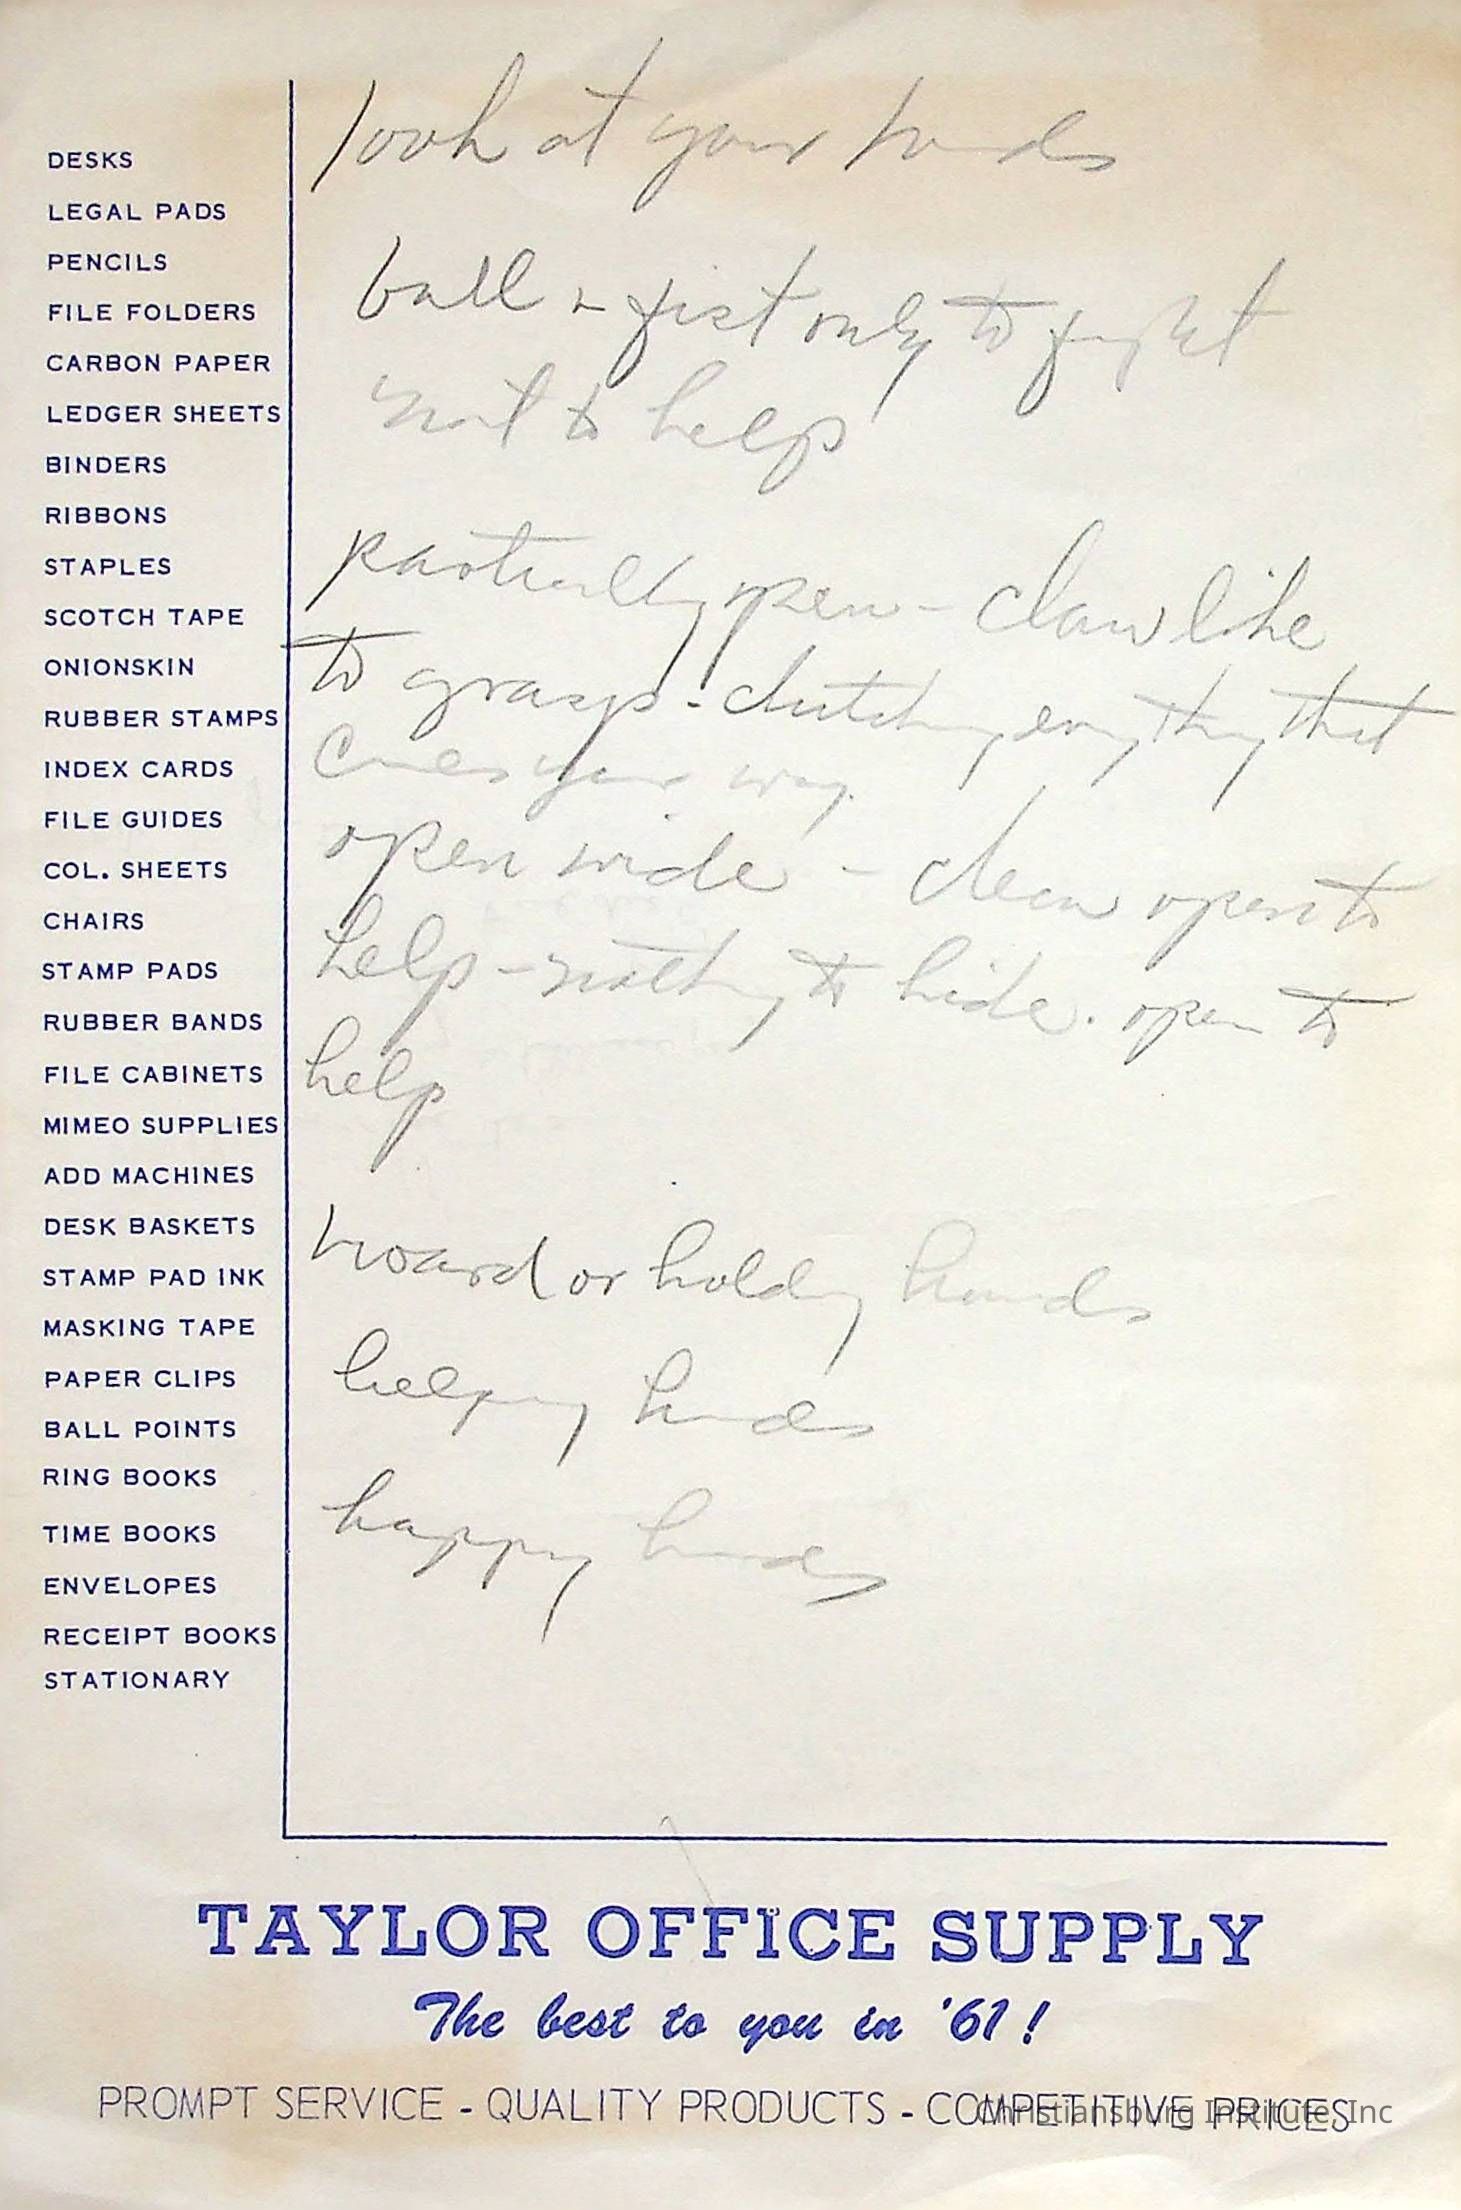 look at your hands
ball a fist only to fight
not to help
partially open - claw like
to grasp - clutching everything that
comes your way.
open wide - clean open to
help - nothing to hide. open to
help
hoard or holding hands
helping hands
happy hands
DESKS
LEGAL PADS
PENCILS
FILE FOLDERS
CARBON PAPER
LEDGER SHEETS
BINDERS
RIBBONS
STAPLES
SCOTCH TAPE
ONIONSKIN
RUBBER STAMPS
INDEX CARDS
FILE GUIDES
COL. SHEETS
CHAIRS
STAMP PADS
RUBBER BANDS
FILE CABINETS
MIMEO SUPPLIES
ADD MACHINES
DESK BASKETS
STAMP PAD INK
MASKING TAPE
PAPER CLIPS
BALL POINTS
RING BOOKS
TIME BOOKS
ENVELOPES
RECEIPT BOOKS
STATIONARY
TAYLOR OFFICE SUPPLY
The best to you in '61!
PROMPT SERVICE - QUALITY PRODUCTS - COMPETITIVE PRICES
Christiansburg Institute, Inc